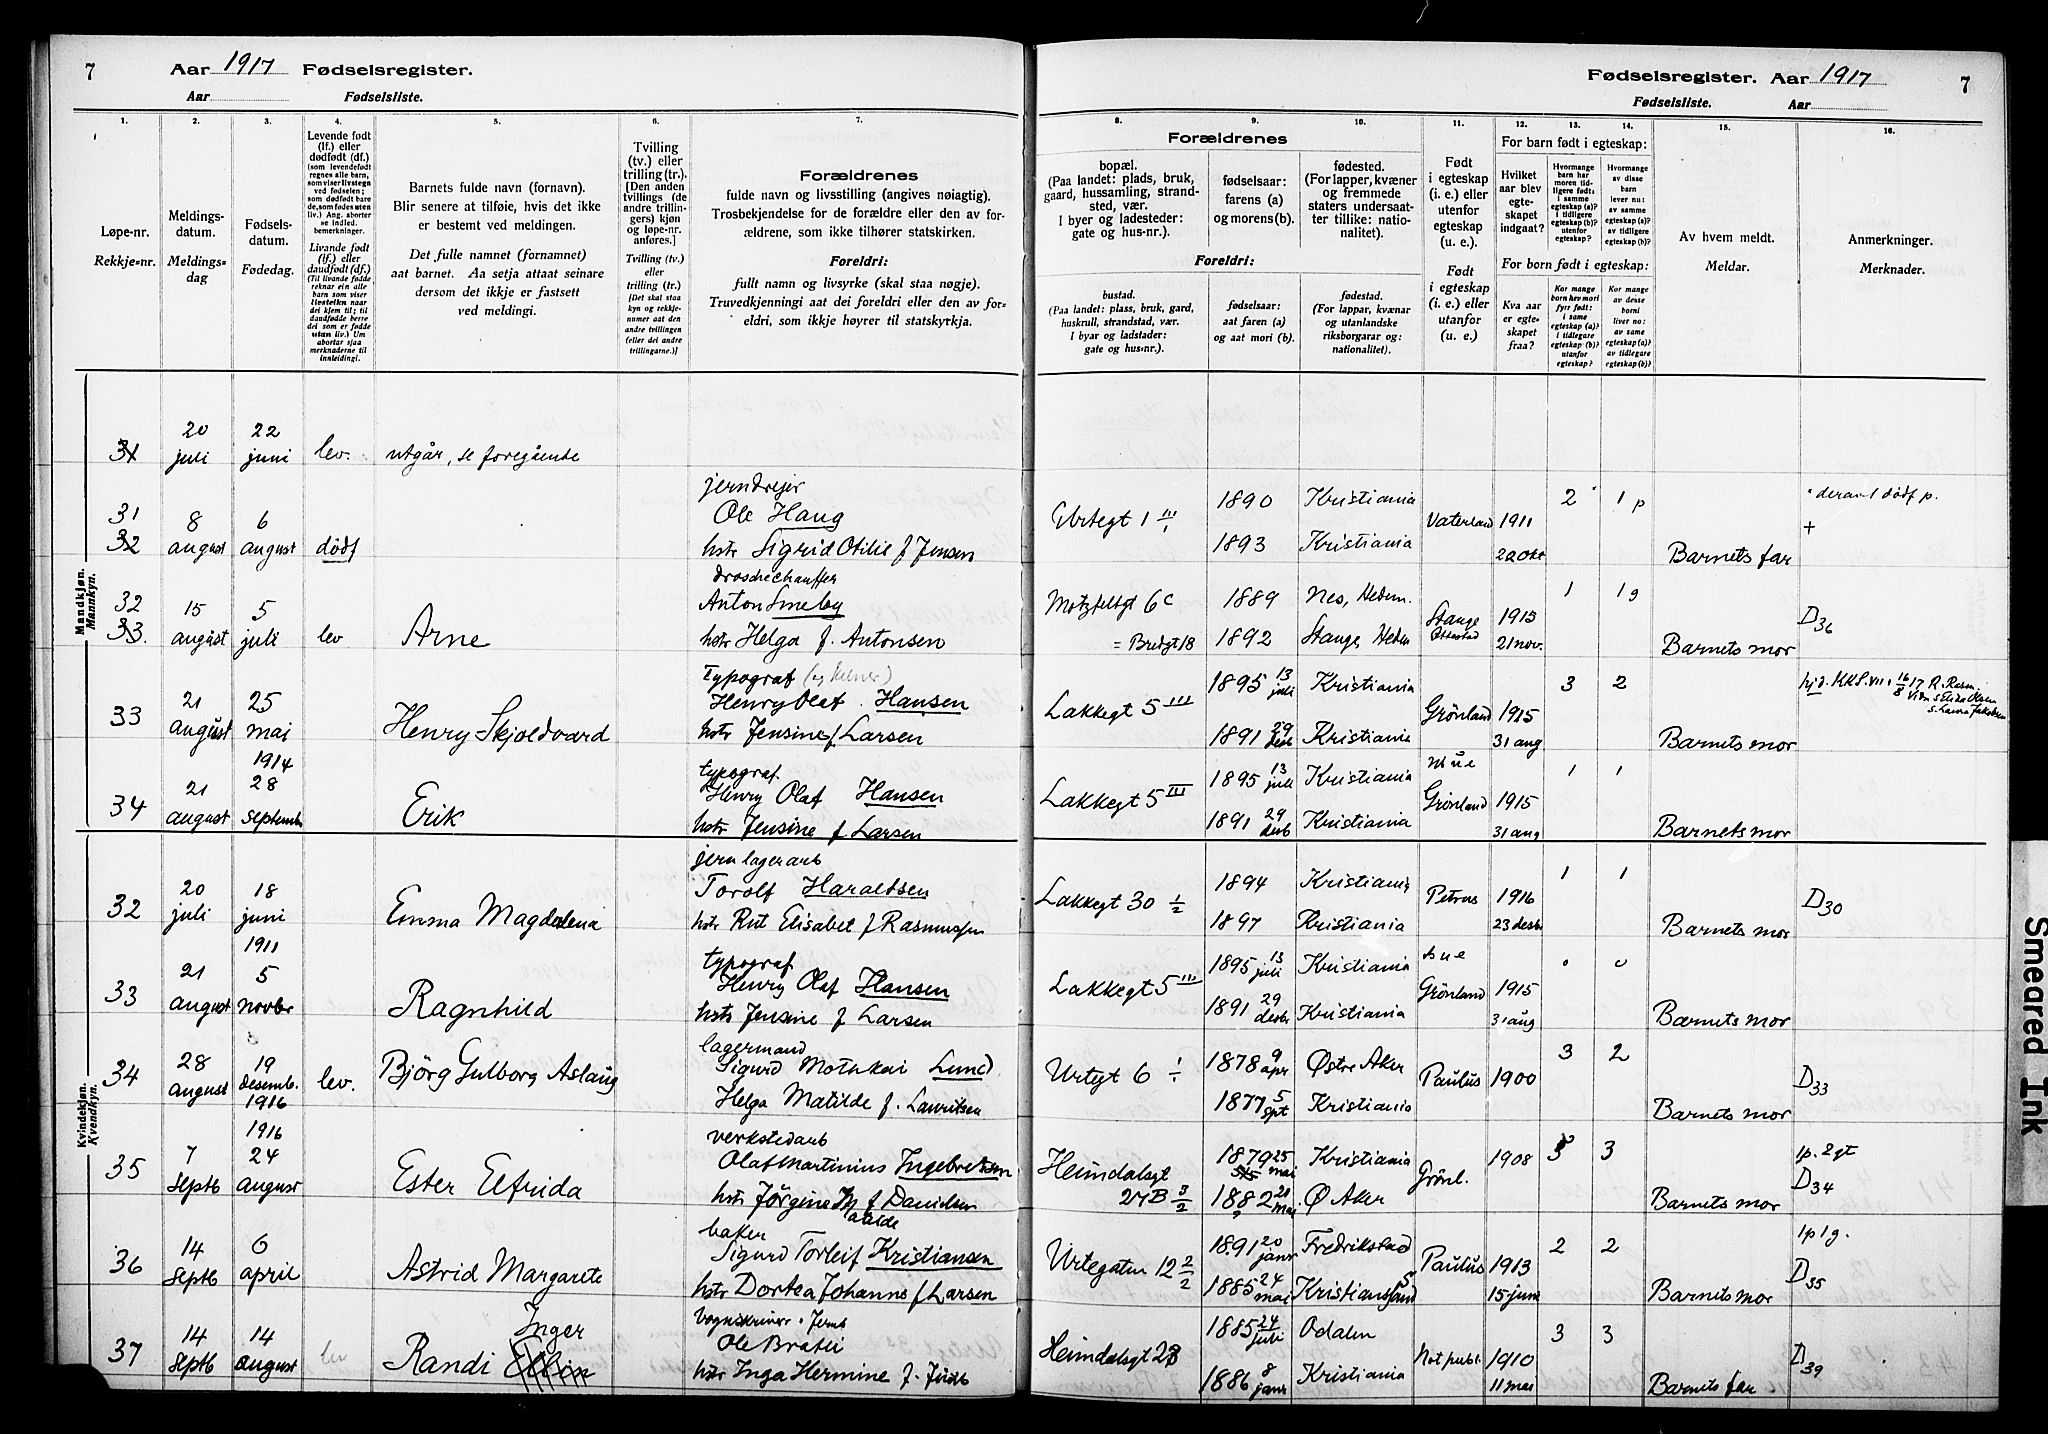 7 Aar 1917 Fødselsregister.
Aar Fødselsliste.
Fødselsregister. Aar 1917 7
Fødselsliste. Aar
1. 2. 3. 4. 5. 6. 7.
Løpe-nr.
Rekkje=nr.
Meldings-
datum.
Meldings=
dag
Fødsels-
datum.
Fødedag.
Levende født
(lf.) eller
dødfødt (df.)
(som levendefødt
regnes alle barn,
som viser livstegn
ved fødselen;
som dødfødt bare
de, som fødes uten
liv.) Ang. aborter
se indled.
bemerkninger.
Livande født
(lf.) eller
daudfødt (df.)
(Til livande fødde
reknar ein alle
barn som viser
livsteikn naar
dei kjem til; til
daudfødde berre
dei som er fødde
utan liv.) Um
abortar sjaa
merknaderne til
innleidingi.
Barnets fulde navn (fornavn).
Blir senere at tilføie, hvis det ikke
er bestemt ved meldingen.
Det fulle namnet (fornamnet)
aat barnet. Aa setja attaat seinare
dersom det ikkje er fastsett
ved meldingi.
Tvilling
(tv.) eller
trilling (tr.)
[Den anden
tvillings (de
andre trillin-
gers) kjøn
og løpe-nr.
anføres.]
Tvilling (tv.)
eller
trilling (tr.)
[Det skal staa
kyn og rekkje-
numer aat den
andre tvillingen
(eller dei andre
trillingarne.)]
Forældrenes
fulde navn og livsstilling (angives nøiagtig).
Trosbekjendelse for de forældre eller den av for-
ældrene, som ikke tilhører statskirken.
Foreldri:
fullt namn og livsyrke (skal staa nøgje).
Truvedkjenningi aat dei foreldri eller den av for=
eldri, som ikkje høyrer til statskyrkja.
8. 9. 10. 11. 12. 13. 14. 15. 16.
Forældrenes
bopæl.
(Paa landet: plads, bruk,
gaard, hussamling, strand-
sted, vær.
I byer og ladesteder:
gate og hus-nr.).
fødselsaar:
farens (a)
og morens (b).
fødested.
(For lapper, kvæner
og fremmede
staters undersaat-
ter tillike: natio-
nalitet).
Foreldri:
bustad.
(Paa landet: plass, bruk, gard,
huskrull, strandstad, vær.
I byar og ladstader:
gate og hus=nr.).
fødselsaar:
aat faren (a)
og aat mori (b).
fødestad.
(For lappar, kvænar
og utanlandske
riksborgarar og:
nationalitet).
Født
i egteskap
(i. e.) eller
utenfor
egteskap
(u. e.)
Født
i egteskap
(i. e.) eller
utanfor
(u. e.)
For barn født i egteskap:
Hvilket
aar blev
egte-
skapet
indgaat?
Hvormange
barn har
moren tid-
ligere født:
i samme
egteskap (a)?
i tidligere
egteskap (b)?
utenfor
egteskap?
Hvormange
av disse
barn
lever nu:
av samme
egteskap (a)?
av tidligere
egteskap (b)?
For born født i egteskap:
Kva aar
er egte=
skapet
fraa?
Kor mange
born hev mori
fyrr født:
i same
egteskap (a)?
i tidlegare
egteskap (b)?
utanfor
egteskap?
Kor mange
av desse
borni
liver no:
av same
egteskap (a)?
av tidlegare
egteskap (b)?
Av hvem meldt.
Meldar.
Anmerkninger.
Merknader.
Mandkjøn.
Mannkyn.
31 20 juli 22 juni lev. utgår, se foregående
jerndrejer
31 8 6 Ole Haug Urtegt 1 1890 Kristiania Vaterland 1911 2 1 p deraf 1 dödf p.
32 august august dödf hstr Sigrid Otilie f Jensen 1893 Kristiania 22 okt Barnets far +
droschechauffer
32 15 5 Anton Smeby Motzfeltsgt 6c 1889 Nes, Hedm. Stange 1913 1 1 g
33. august juli lev Arne hstr Helga f. Antonsen = Bredgt 18 1892 Stange, Hedm Ottestad 21 nov. Barnets mor D36
Typograf
33 21 25 Henry Olaf Hansen Lakkegt 5 III 1895 13 juli Kristiania Grönland 1915 3 2
august mai Henry Skjoldvard hstr Jensine f. Larsen 1891 29 desb Kristiania 31 aug Barnets mor
1914 typograf
34 21 28 Henry Olaf Hansen Lakkegt 5 III 1895 13 juli Kristiania Grönland 1915 1 1
august septemb Erik hstr Jensine f Larsen 1891 29 desb Kristiania 31 aug Barnets mor
Kvindekjøn.
Kvendkyn.
jernlagerarb
32 20 18 Torolf Haraldsen Lakkegt 30 1/2 1894 Kristiania Petrus 1916 1 1
juli juni Emma Magdalena hstr Rut Elisabet f Rasmussen 1897 Kristiania 23 desbr Barnets mor D30
1911 typograf
33 21 5 Henry Olaf Hansen Lakkegt 5 III 1895 13 juli Kristiania Grönland 1915 0 0
august novbr Ragnhild hstr Jensine f Larsen 1891 29 desbr Kristiania 31 aug Barnets mor
lagermand
34 28 19 Sigurd Lund Urtegt 6 1/1 1878 9 apr Østre Aker Paulus 1900 3 2
august desemb. 1916 lev. Björg Gulborg Aslaug Helga Matilde f. Lauritsen 1877 5 spt Kristiania Barnets mor D33
1916 verkstedarb
35 7 24 Olaf Martinius Ingebretsen Heimdalsgt 1879 25 mai Kristiania Grönl. 1908 3 3 1p. 2gt
septb august Ester Elfrida hstr Jörgine Matilde f Danielsen 27B 3/2 1882 21 mai Ø Aker Barnets mor D34
baker
36 14 6 Sigurd Torleif Kristiansen Urtegaten 12 2/2 1891 20 janr Fredrikstad Paulus 1913 2 2 1p 1g.
septb april Astrid Margarete hstr Dortea Johanne f Larsen 1885 24 mai Kristiansand S 15 juni Barnets mor D35
Inger
37 14 14 Ole Bratli Heimdalsgt 28 1885 24 juli Odalen Not publ. 1910 3 3
septb august lev Randi hstr Inga Hermine f. 1886 8 janr Kristiania 11 mai Barnets far D39
Smeared Ink